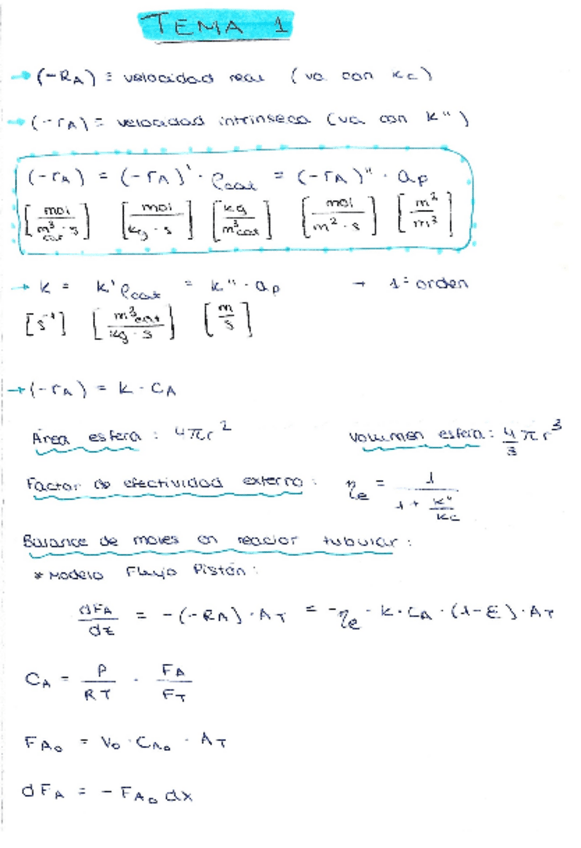 TEMA 1
→ (-RA) ≡ velocidad real (va con kc)
→ (-rA) ≡ velocidad intrínseca (va con k'')
(-rA) = (-rA)' · ρcat = (-rA)'' · ap
[mol / m³cat · s] [mol / kg · s] [kg / m³cat] [mol / m² · s] [m² / m³]
→ k = k' ρcat = k'' · ap → 1º orden
[s⁻¹] [m³cat / kg · s] [m / s]
→ (-rA) = k · CA
Área esfera : 4πr² Volumen esfera : 4/3 πr³
Factor de efectividad externo : ηe = 1 / (1 + k''/kc)
Balance de moles en reactor tubular :
* Modelo Flujo Pistón :
dFA/dz = -(-RA) · AT = -ηe · k · CA · (1-ε) · AT
CA = P/RT · FA/FT
FA₀ = V₀ · CA₀ · AT
dFA = - FA₀ dx